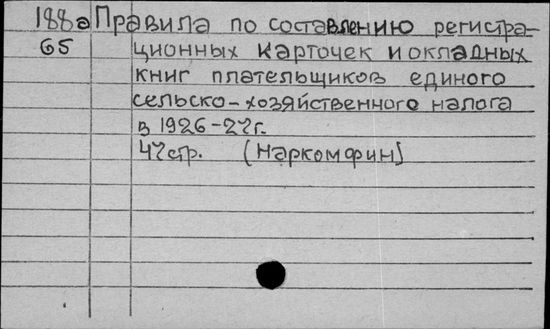 188а Правила по составлению регистра-
65 ционных карточек и окладных
книг плательщиков единого
сельско-хозяйственного налога
в 1926-27г.
47 стр. (Наркомфин)